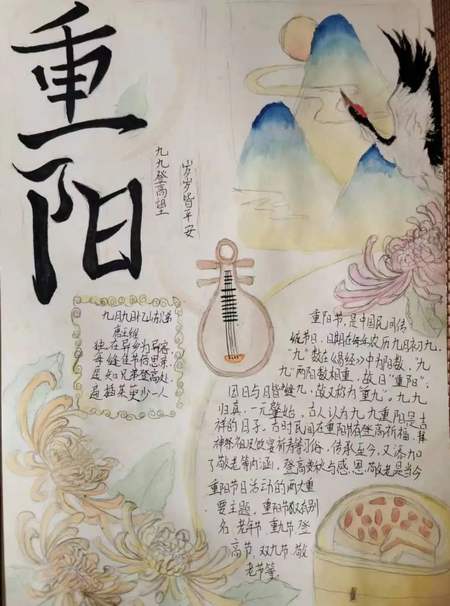 重阳
九九登高望
岁岁皆平安
九月九日忆山东兄弟
唐 王维
独在异乡为异客
每逢佳节倍思亲
遥知兄弟登高处
遍插茱萸少一人
重阳节,是中国民间传
统节日,日期在每年农历九月初九,
"九"数在《易经》中为阳数,"九
九"两阳数相重,故曰"重阳"。
因日与月皆逢九,故又称为"重九"。九九
归真,一元肇始,古人认为九九重阳是吉
祥的日子。古时民间在重阳节有登高祈福、拜
神祭祖及饮宴祈寿等习俗,传承至今,又添加
了敬老等内涵,登高赏秋与感恩敬老是当今
重阳节日活动的两大重
要主题,重阳节
名 老年节 重九节 登
高节,双九节 敬
老节等